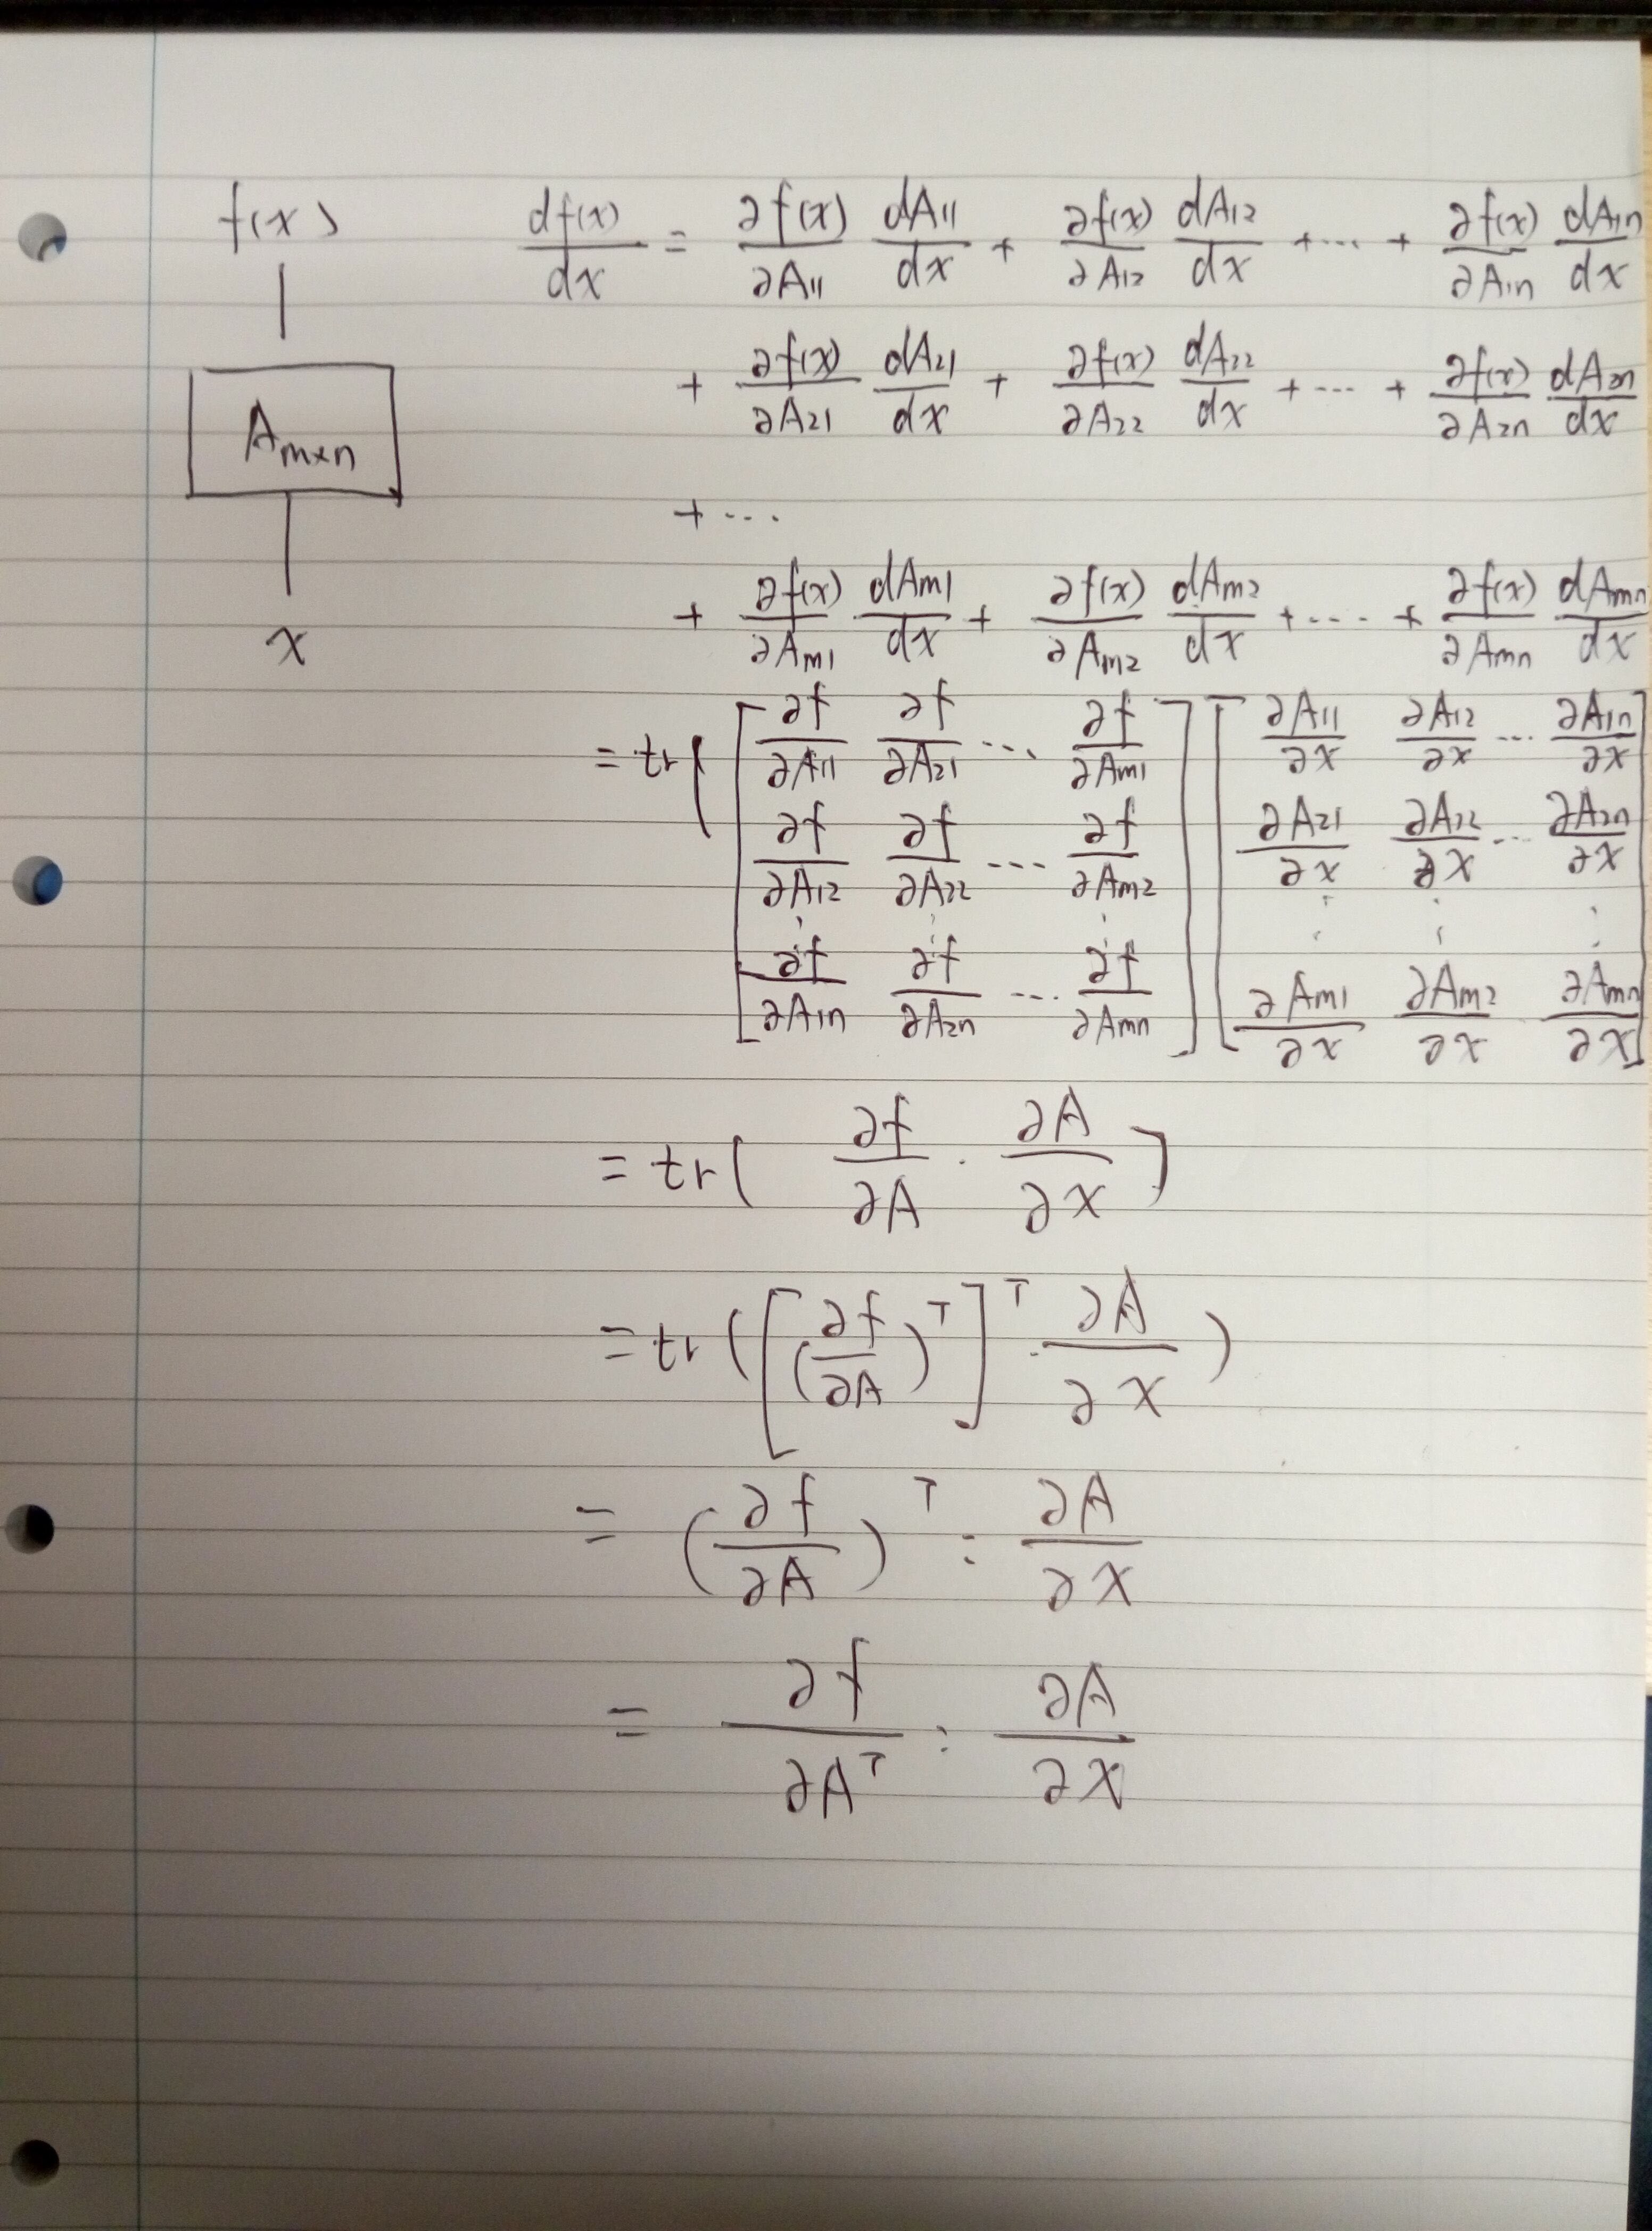 f(x)
df(x)/dx = ∂f(x)/∂A₁₁ dA₁₁/dx + ∂f(x)/∂A₁₂ dA₁₂/dx + ⋯ + ∂f(x)/∂A₁ₙ dA₁ₙ/dx
+ ∂f(x)/∂A₂₁ dA₂₁/dx + ∂f(x)/∂A₂₂ dA₂₂/dx + ⋯ + ∂f(x)/∂A₂ₙ dA₂ₙ/dx
Aₘₓₙ
+ ⋯
+ ∂f(x)/∂Aₘ₁ dAₘ₁/dx + ∂f(x)/∂Aₘ₂ dAₘ₂/dx + ⋯ + ∂f(x)/∂Aₘₙ dAₘₙ/dx
x
= tr( [ ∂f/∂A₁₁ ∂f/∂A₂₁ ⋯ ∂f/∂Aₘ₁ ] [ ∂A₁₁/∂x ∂A₁₂/∂x ⋯ ∂A₁ₙ/∂x ]
∂f/∂A₁₂ ∂f/∂A₂₂ ⋯ ∂f/∂Aₘ₂ ∂A₂₁/∂x ∂A₂₂/∂x ⋯ ∂A₂ₙ/∂x
⋮ ⋮ ⋮ ⋮ ⋮ ⋮
∂f/∂A₁ₙ ∂f/∂A₂ₙ ⋯ ∂f/∂Aₘₙ ∂Aₘ₁/∂x ∂Aₘ₂/∂x ∂Aₘₙ/∂x
= tr( ∂f/∂A · ∂A/∂x )
= tr( [ (∂f/∂A)ᵀ ]ᵀ · ∂A/∂x )
= (∂f/∂A)ᵀ : ∂A/∂x
= ∂f/∂Aᵀ : ∂A/∂x